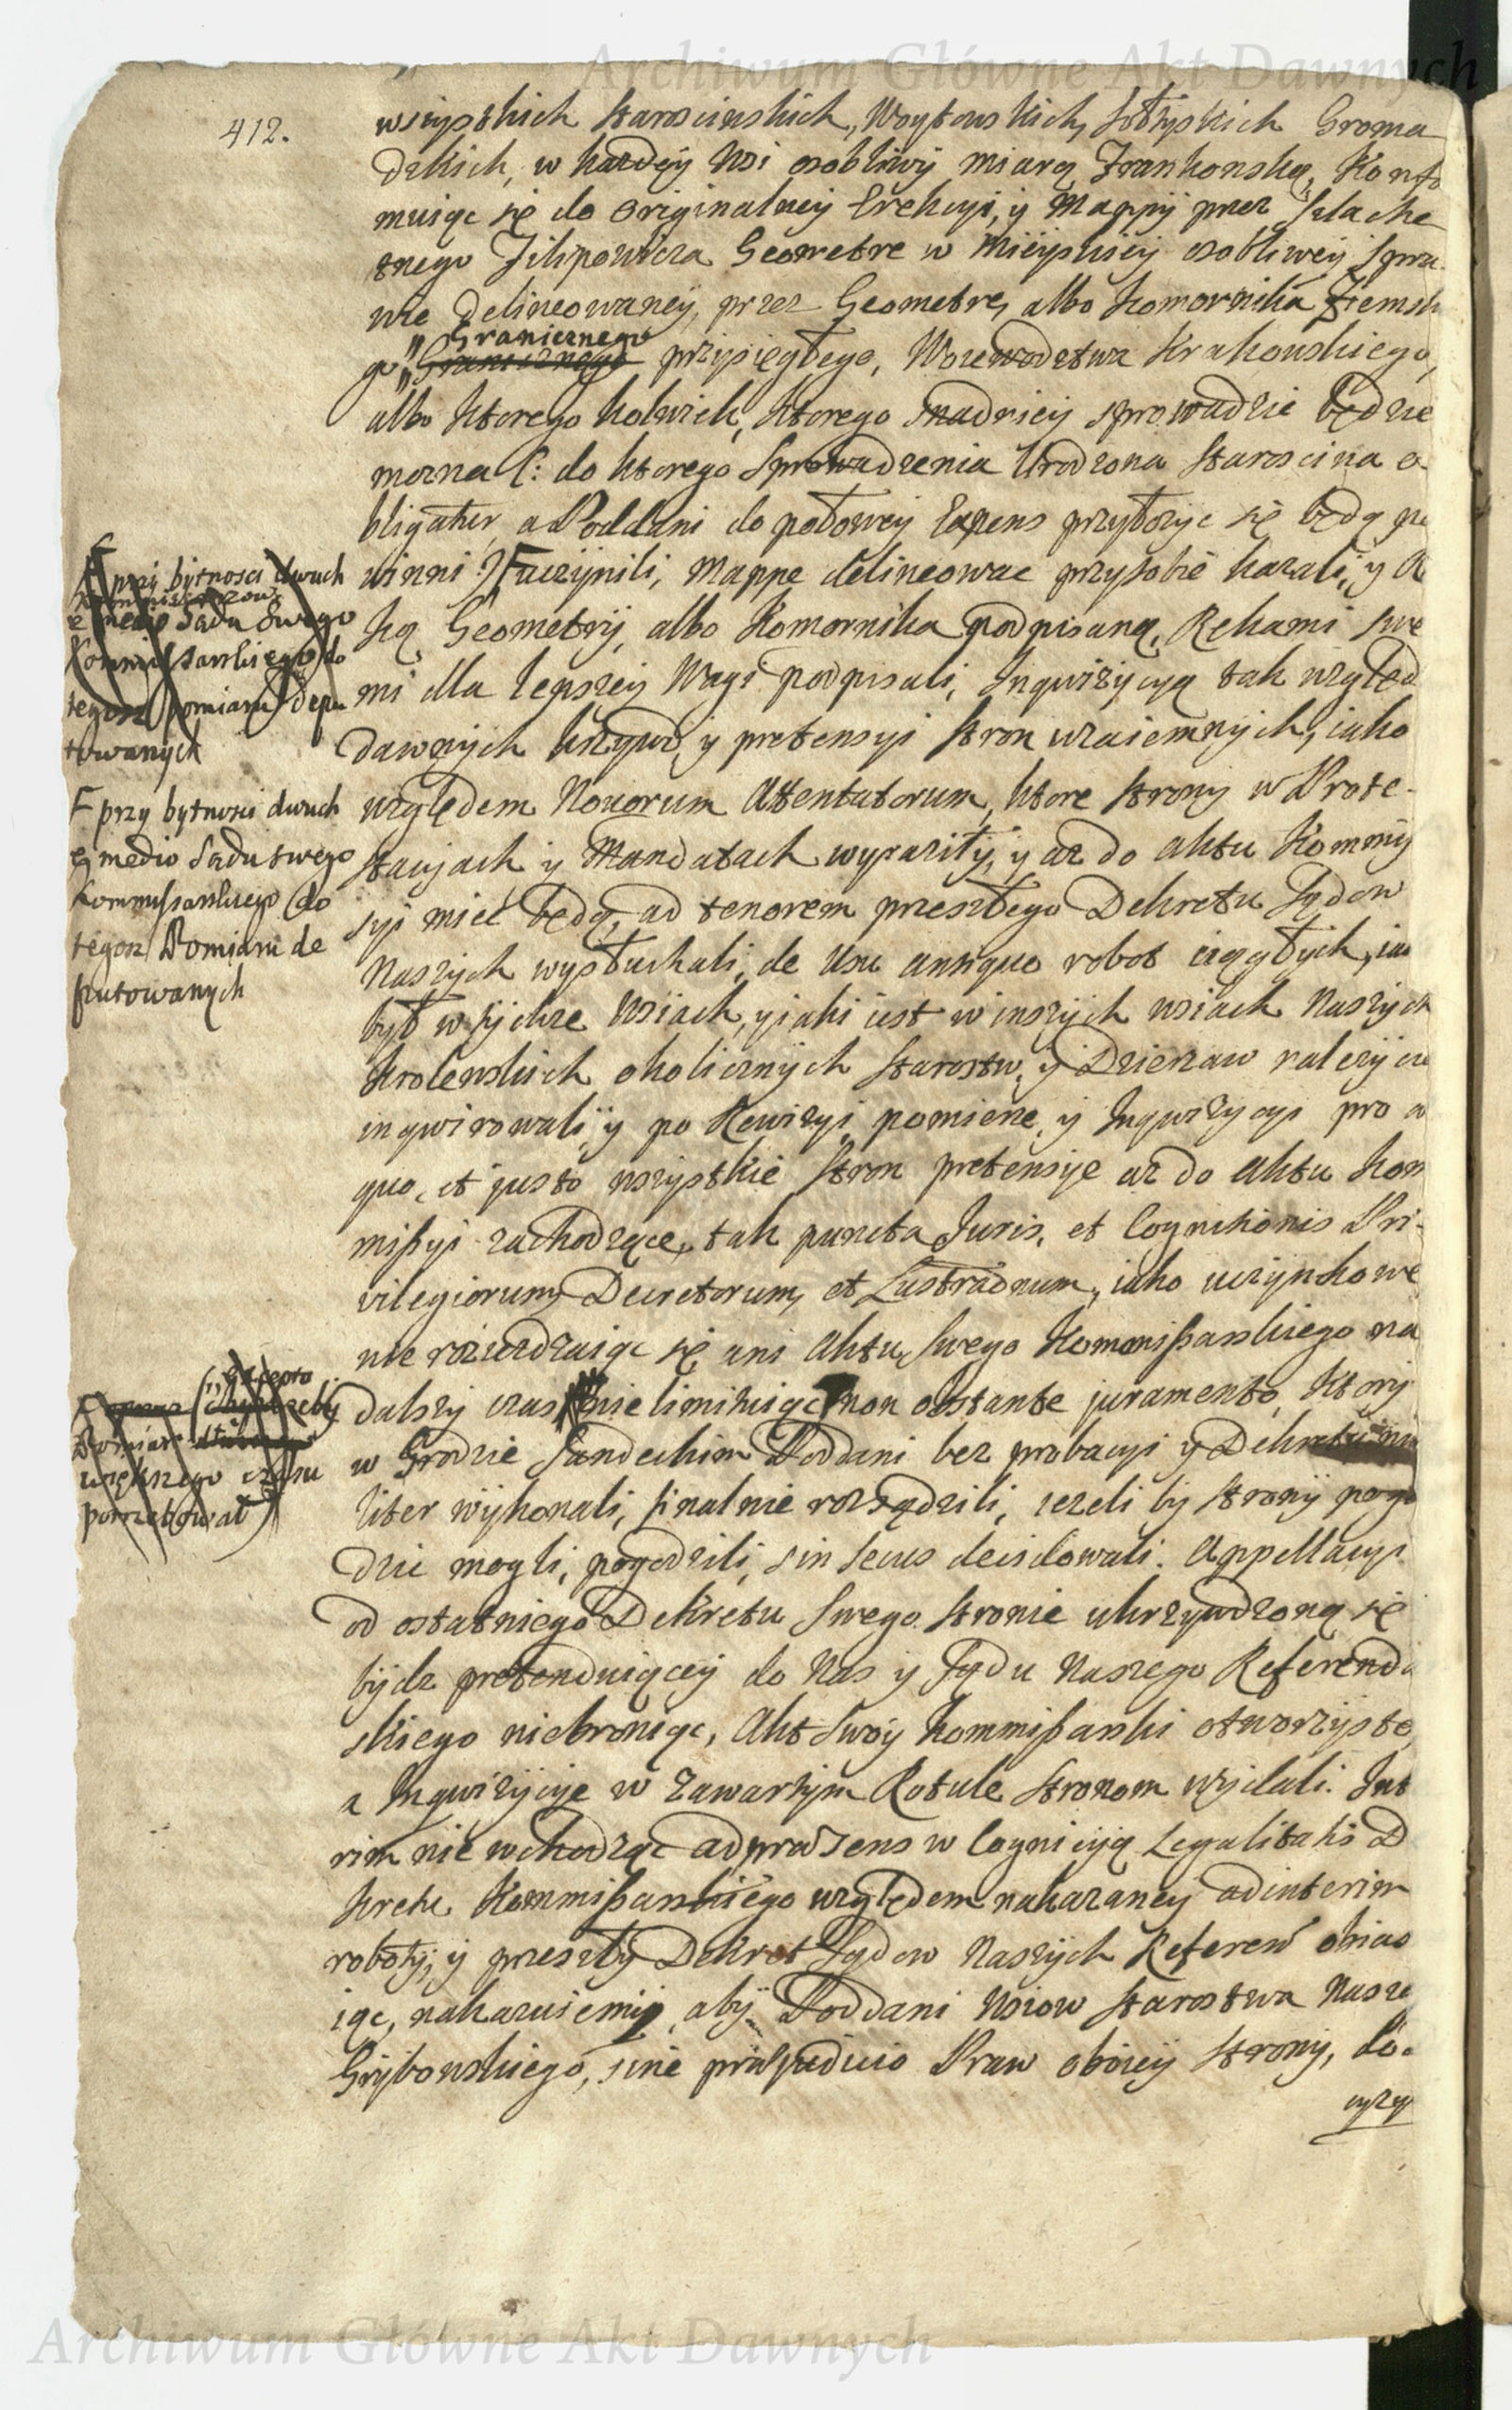 Archiwum Główne Akt Dawnych
412.
wszystkich Starościnskich, Woytowskich, Sołtyskich Groma
dzkich, w kazdey Wsi osobliwy miarą Frankonską, Konfo
muiąc się do originalney Erekcyi, y Mappy przez Szlache
tnego Filipowicza Geometre w Mieyskiey osobliwey Spra
wie delineowaney, przez Geometre, albo Komornika Ziemsk
Granicznego
go, Granicznego przysięgłego, Woiewodztwa Krakowskiego,
albo ktorego kolwiek, ktorego snadniey sprowadzic będzie
mozna (: do ktorego Sprowadzenia Urodzona Starościna o
bligatur, a Poddani do połowey Expens przyłozyc się będą po
winni :) F uczynili, Mappe delineowac przy sobie kazali, y R
ką Geometry, albo Komornika podpisaną, Rękami swe
mi dla lepszey Wagi podpisali, Inqwizycyą tak względ
dawnych krzywd, y pretensyi stron wzaiemnych, iako
względem Novorum Attentatorum, ktore strony w Prote-
stacyach y Mandatach wyraziły, y az do aktu Kommis
syi mieć będą, ad tenorem przeszłego Dekretu Sądow
Naszych wysłuchali, de usu antiquo robot ciągłych, iak
był w tychze Wsiach, y iaki iest w inszych wsiach Naszych
Krolewskich okolicznych Starostw, y Dzierzaw nalezycie
inqwirowali, y po Rewizyi, pomierze, y Inqwizycyi pro a
quo, et justo wszystkie Stron pretensye az do aktu Kom
missyi zachodzące, tak puncta Juris, et Cognitionis Pri-
vilegiorum, Decretorum, et Lustrationum, iako uczynkowe
nie rozierdzaiąc się ani Aktu Swego Kommissarskiego na
dalszy czas nie limituiąc non obstante juramento, ktory
w Grodzie Sandeckim Poddani bez probacyi y Dekretu
liter wykonali, finalnie rozsądzili, iezeli by Strony pogo
dzic mogli, pogodzili, sin secus decidowali. Appellacyi
od ostatniego Dekretu Swego stronie ukrzywdzoną się
bydz pretenduiącey do Nas y Sądu Naszego Referenda
skiego niebroniąc, Akt Swoy Kommissarski otworzysto,
a Inqwizycye w zawartym Rotule Stronom wydali. Int
rim nie wchodząc ad praesens w Cognicyą Legalitatis D
kretu Kommissarskiego względem nakazaney ad interim
roboty, y przeszły Dekret Sądow Naszych Referen obias
iąc, nakazuiemy, aby Poddani Wsiow Starostwa Nasze
Grybowskiego, sine praejudicio Praw oboiey strony, do-
czyy
F przy bytnosci dwuch
Kommissarzow
e medio Sądu Swego
Kommissarskiego do
tegosz pomiaru depu
towanych
F przy bytnosci dwuch
e medio Sądu swego
Kommissarskiego do
tegosz Pomiaru de
putowanych
excepto
chyba zeby
Pomiar
większego czasu
potrzebował)
Archiwum Główne Akt Dawnych